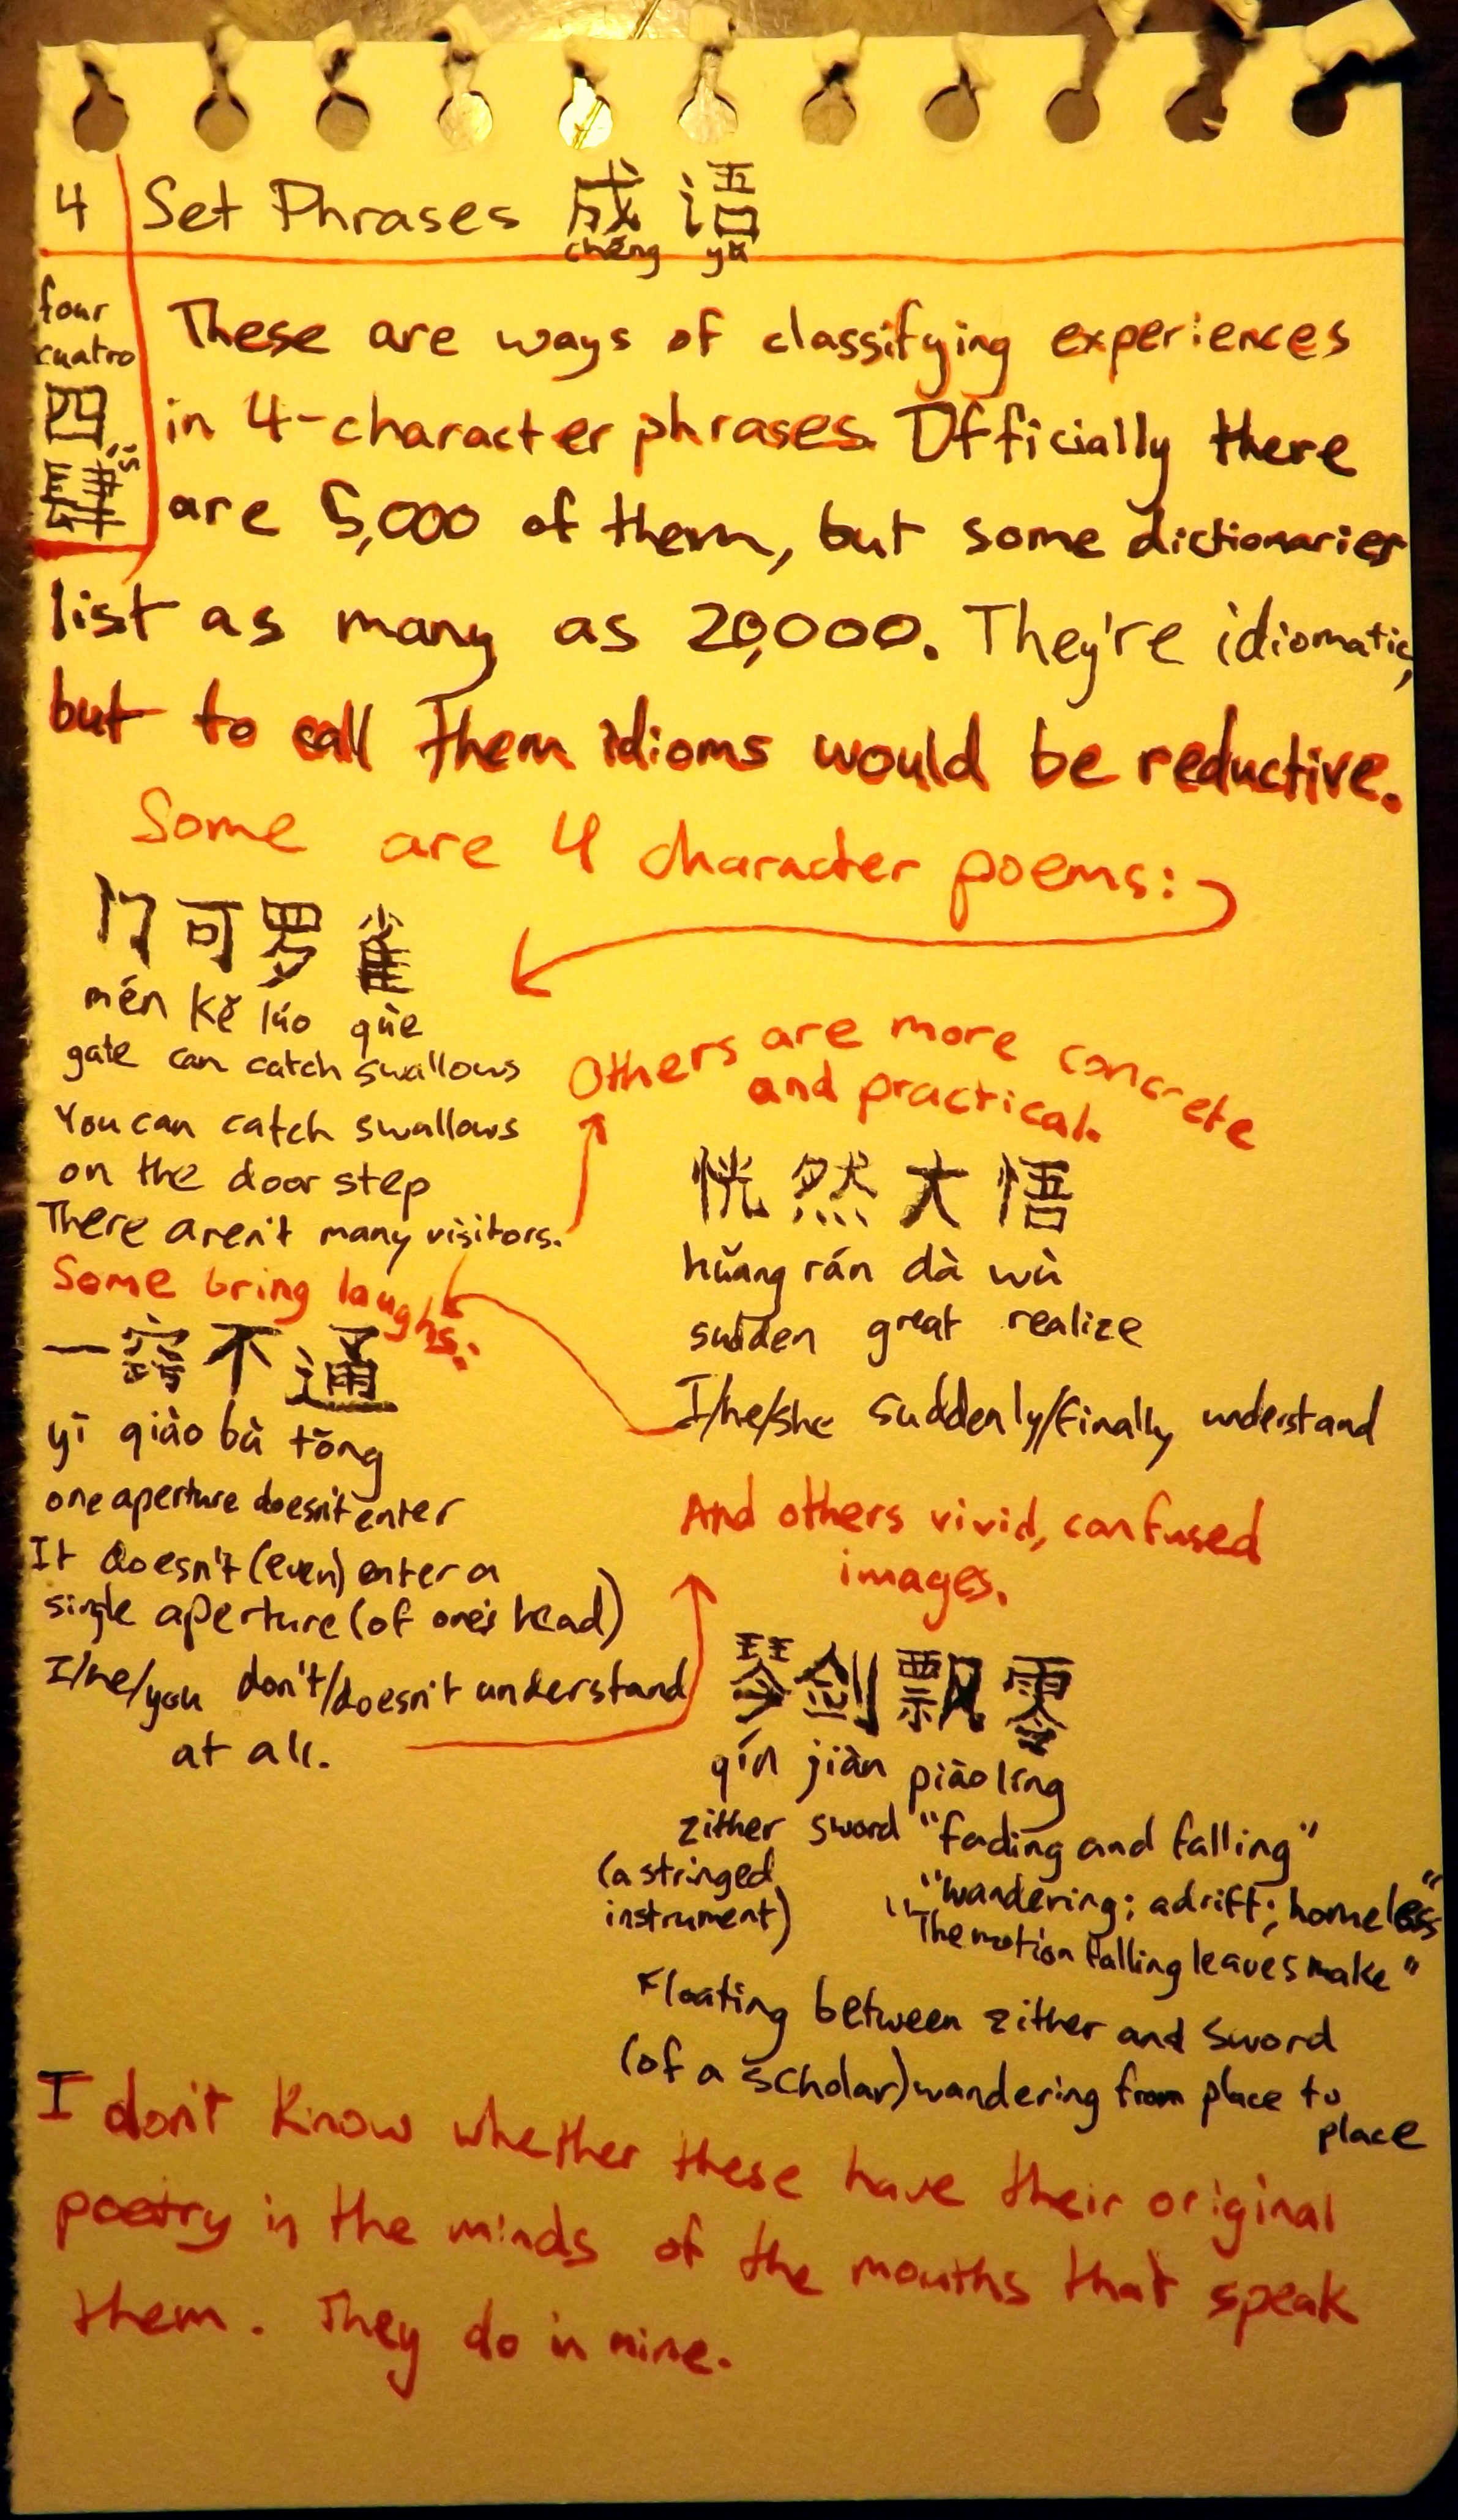 4 Set Phrases 成语
chéng yǔ
four
cuatro
四
肆 sì
These are ways of classifying experiences
in 4-character phrases. Officially there
are 5,000 of them, but some dictionaries
list as many as 20,000. They're idiomatic,
but to call them idioms would be reductive.
Some are 4 character poems:
门可罗雀
mén kě lúo qùe
gate can catch swallows
You can catch swallows
on the door step
There aren't many visitors.
Others are more concrete
and practical.
恍然大悟
hǔang rán dà wù
sudden great realize
I/he/she suddenly/finally understand
Some bring laughs:
一窍不通
yī qiào bù tōng
one aperture doesn't enter
It doesn't (even) enter a
single aperture (of one's head)
I/he/you don't/doesn't understand
at all.
And others vivid, confused
images.
琴剑飘零
qín jiàn piāo líng
zither sword "fading and falling"
(a stringed
instrument)
"wandering; adrift; homeless"
"The motion falling leaves make"
Floating between zither and sword
(of a scholar) wandering from place to
place
I don't know whether these have their original
poetry in the minds of the mouths that speak
them. They do in mine.